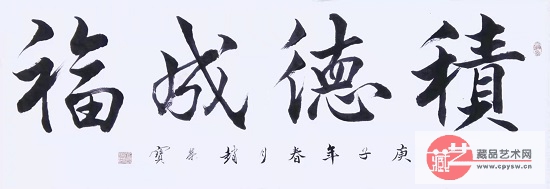 積德成福
庚子年春月趙景寶
藏艺
藏品艺术网
www.cpysw.cn